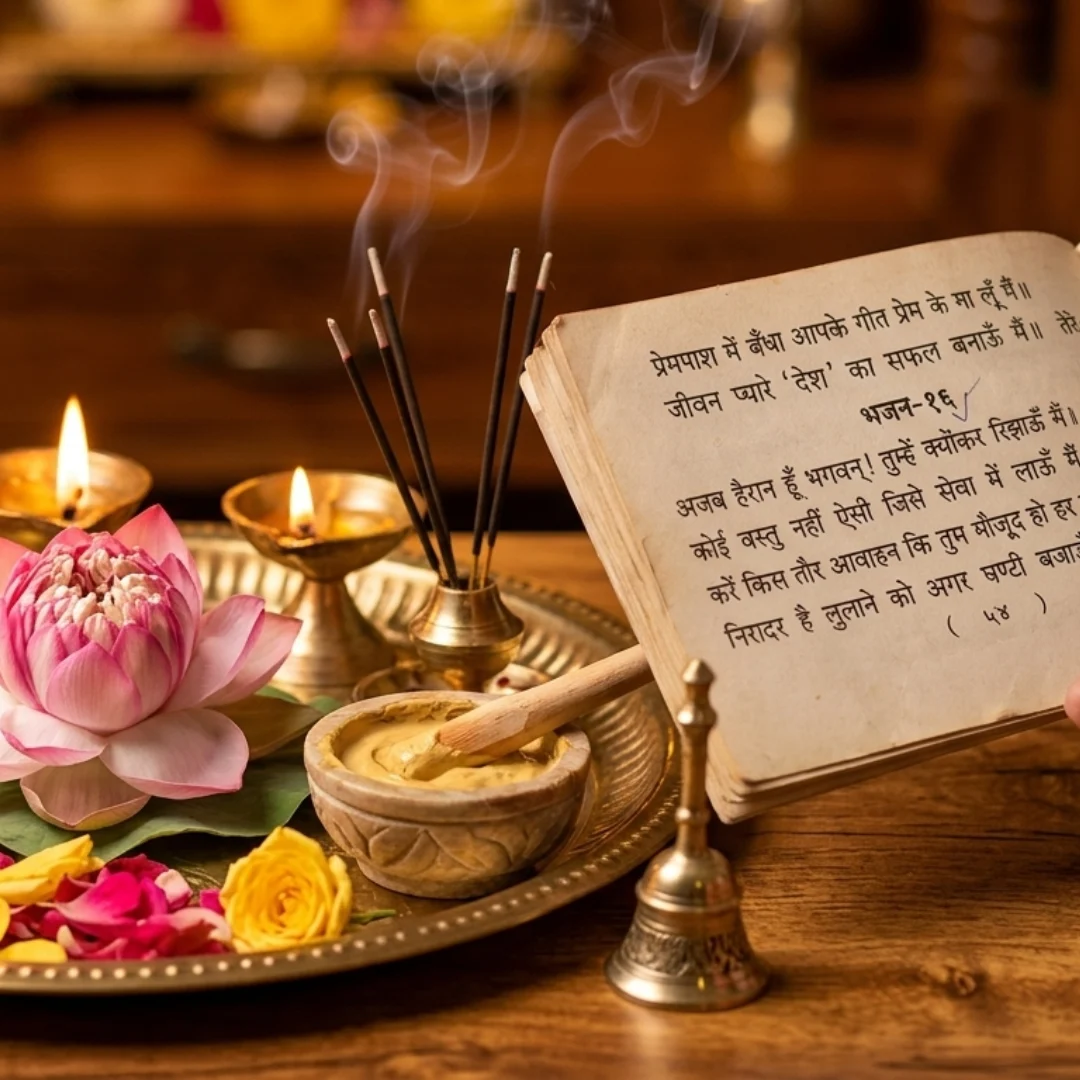 प्रेमपाश में बँधा आपके गीत प्रेम के मा लूँ मैं॥
जीवन प्यारे ‘देश’ का सफल बनाऊँ मैं॥ तेरे
भजन-१६
अजब हैरान हूँ भगवन्! तुम्हें क्योंकर रिझाऊँ मैं।
कोई वस्तु नहीं ऐसी जिसे सेवा में लाऊँ मैं
करें किस तौर आवाहन कि तुम मौजूद हो हर
निरादर है लुलाने को अगर घण्टी बजाऊँ
( ५४ )